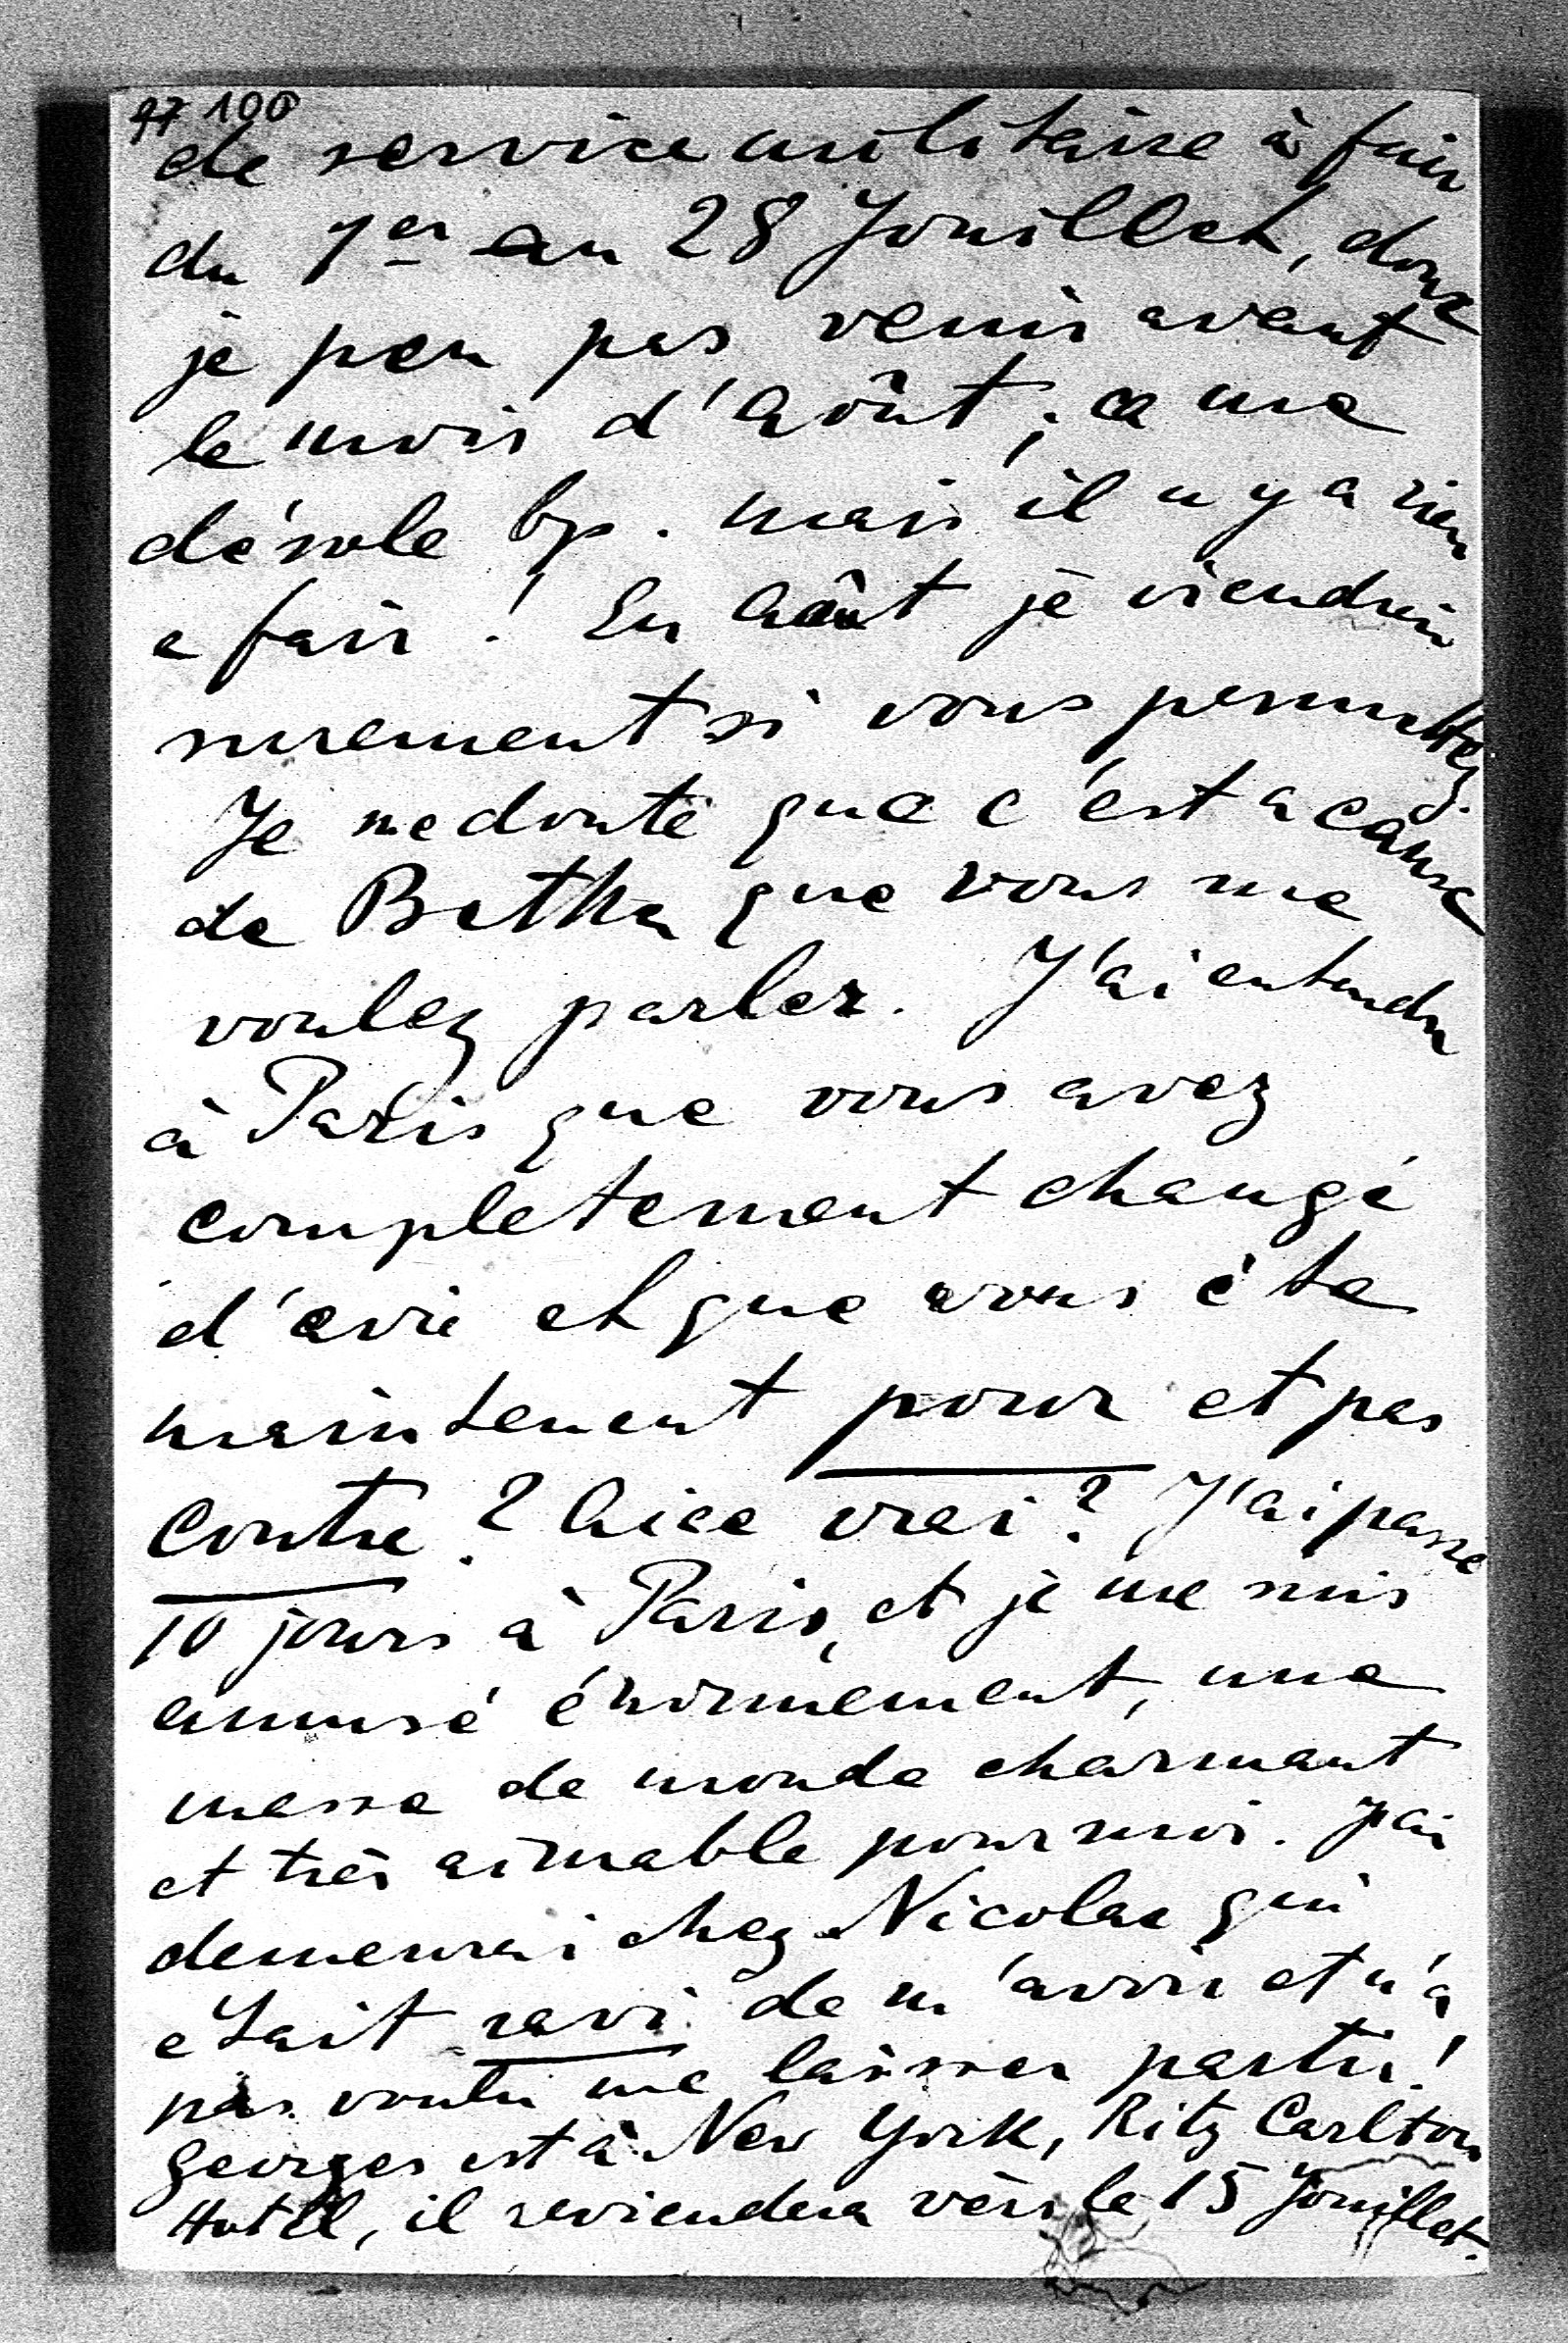 97 100
de service militaire à fair
du 1er au 28 Jouillet, donc
je peu pas venir avant
le mois d'Août; ca me
désole bp. mais il n y a rien
a fair! En Août je viendrai
surement si vous permettez.
Je me doute que c'est a cause
de Betka que vous me
voulez parler. J'ai entendu
à Paris que vous avez
completement changé
d'avie et que vous éte
maintenant pour et pas
contre? Aice vrai? J'ai passe
10 jours à Paris, et je me suis
amusé énormement, une
masse de monde charmant
et très aimable pour moi. J'ai
demeurai chez Nicolas qui
etait ravi de m'avoir et n'a
pas voulu me laisser partir!
Georges est à New York, Ritz Carlton
Hotel, il reviendera vers le 15 Jouillet.